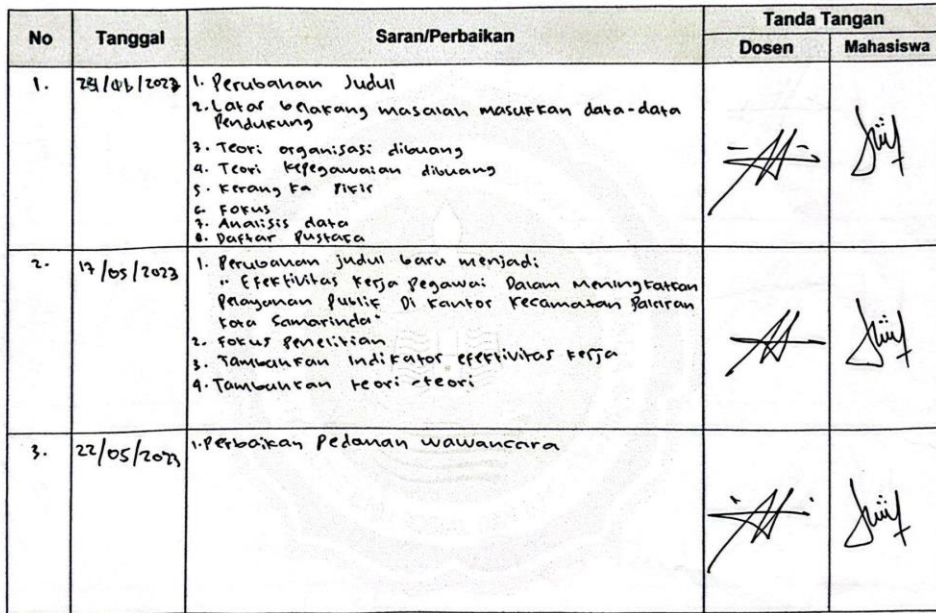 No Tanggal Saran/Perbaikan Tanda Tangan
Dosen Mahasiswa
1.
1. Perubahan Judul
2. Latar belakang masalah masukkan data-data
Pendukung
3. Teori organisasi dibuang
4. Teori Kepegawaian dibuang
5. Kerangka Pikir
6. Fokus
7. Analisis data
8. Daftar Pustaka
2. 17/05/2023
1. Perubahan judul baru menjadi:
" Efektivitas Kerja Pegawai Dalam Meningkatkan
Pelayanan Publik Di Kantor Kecamatan Palaran
Kota Samarinda"
2. Fokus Penelitian
3. Tambahkan Indikator efektivitas kerja
4. Tambahkan teori-teori
3. 22/05/2023
1. Perbaikan Pedoman wawancara